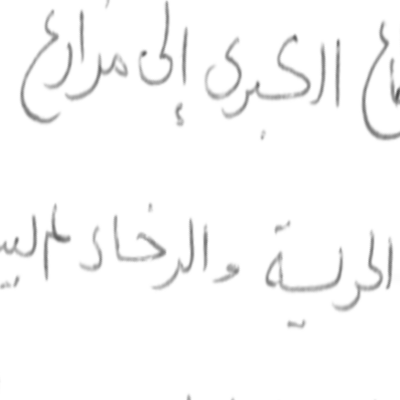 الكبرى إلى مزارع
الحرية و الرخاء لم